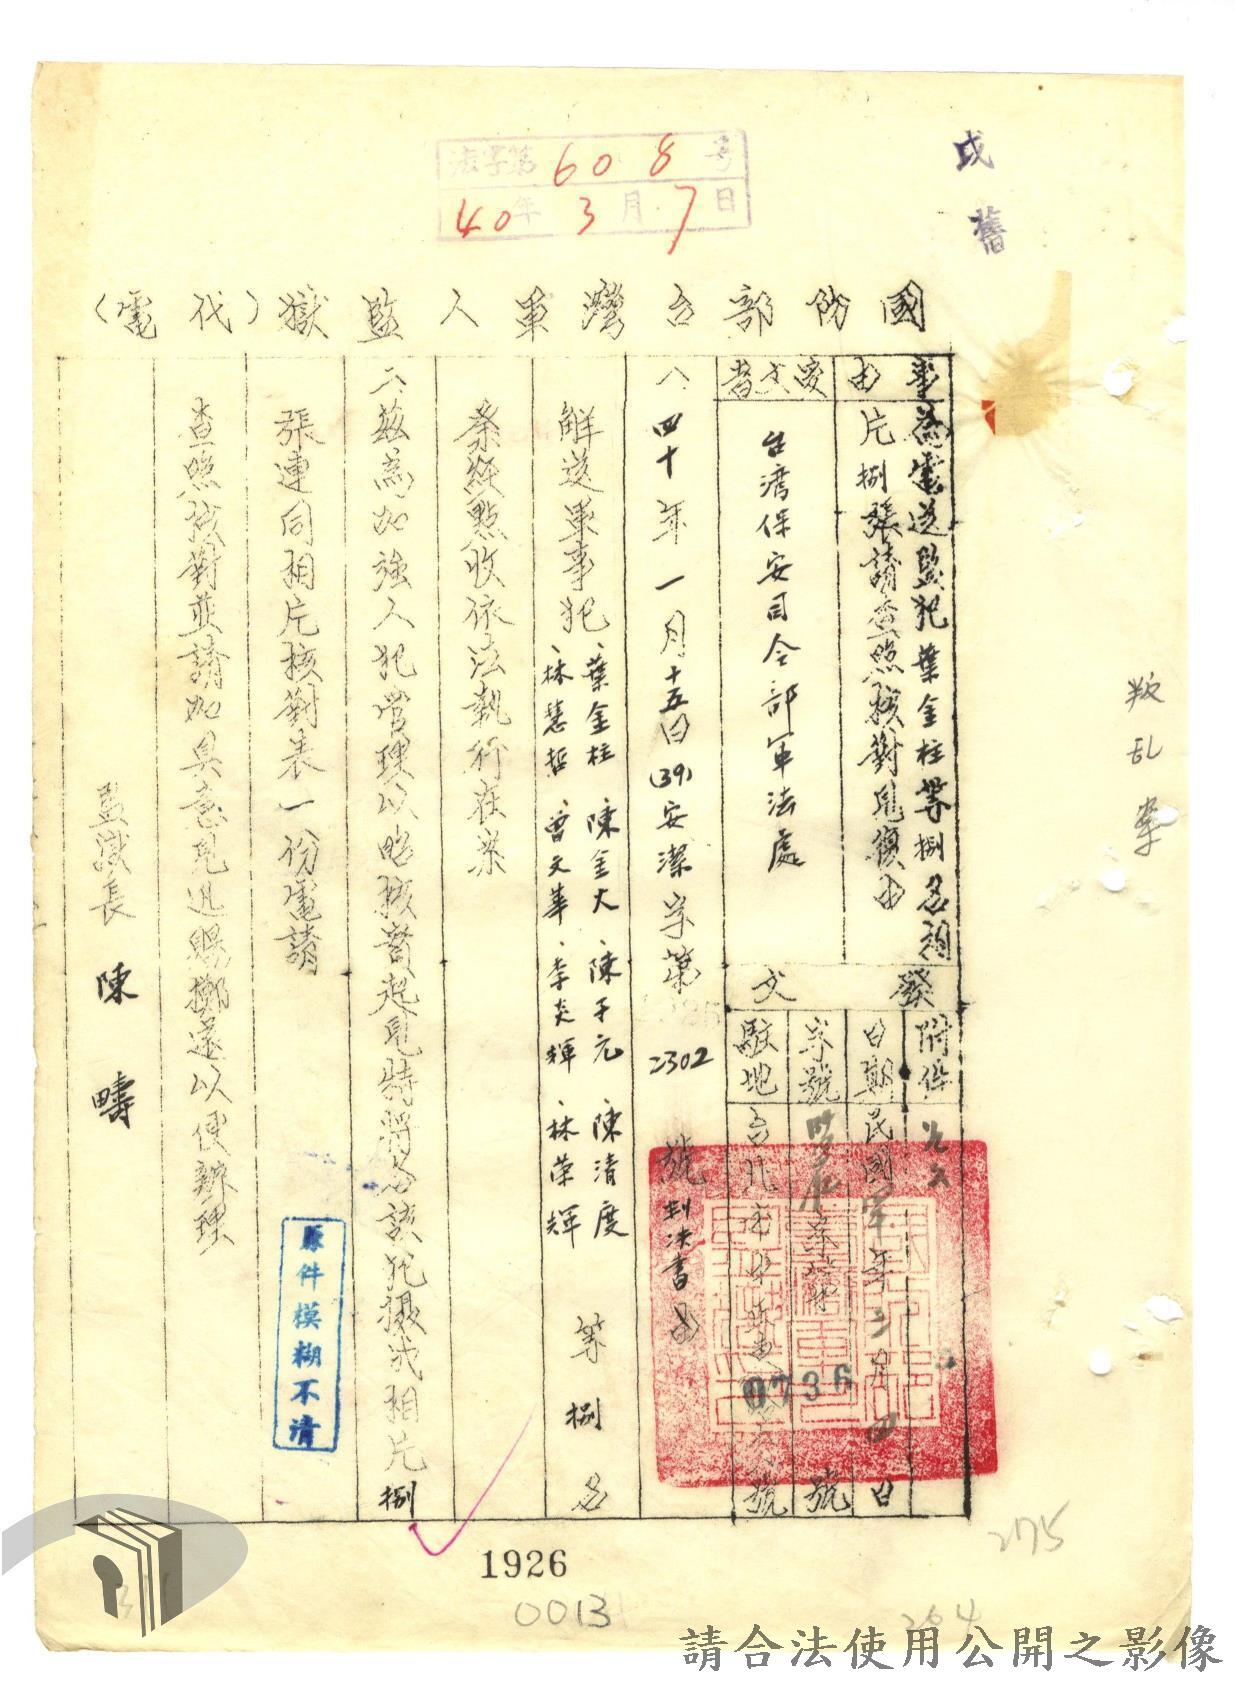 戍
舊
法字第608号
40年3月7日
國防部台灣軍人監獄(代電)
事由
為電送監犯葉金柱等捌名相
片捌張請查照核對見復由
受文者
台灣保安司令部軍法處
發文
附件
日期
民國四十年三月四日
字號
0736
號
駐地
台北市
號
八四十年一月十五日(39)安潔字第2302號判决書
解送軍事犯
、葉金柱、陳金大、陳千元、陳清度
、林慧哲、曾文華、李炎輝、林荣輝
等捌名
業經點收依法執行在案
二茲為加強人犯管理以昭核實起見特將各該犯攝成相片捌
張連同相片核對表一份電請
查照核對並請加具意見迅賜擲還以便辦理
監獄長 陳疇
叛乱案
原件模糊不清
1926
0013
275
請合法使用公開之影像